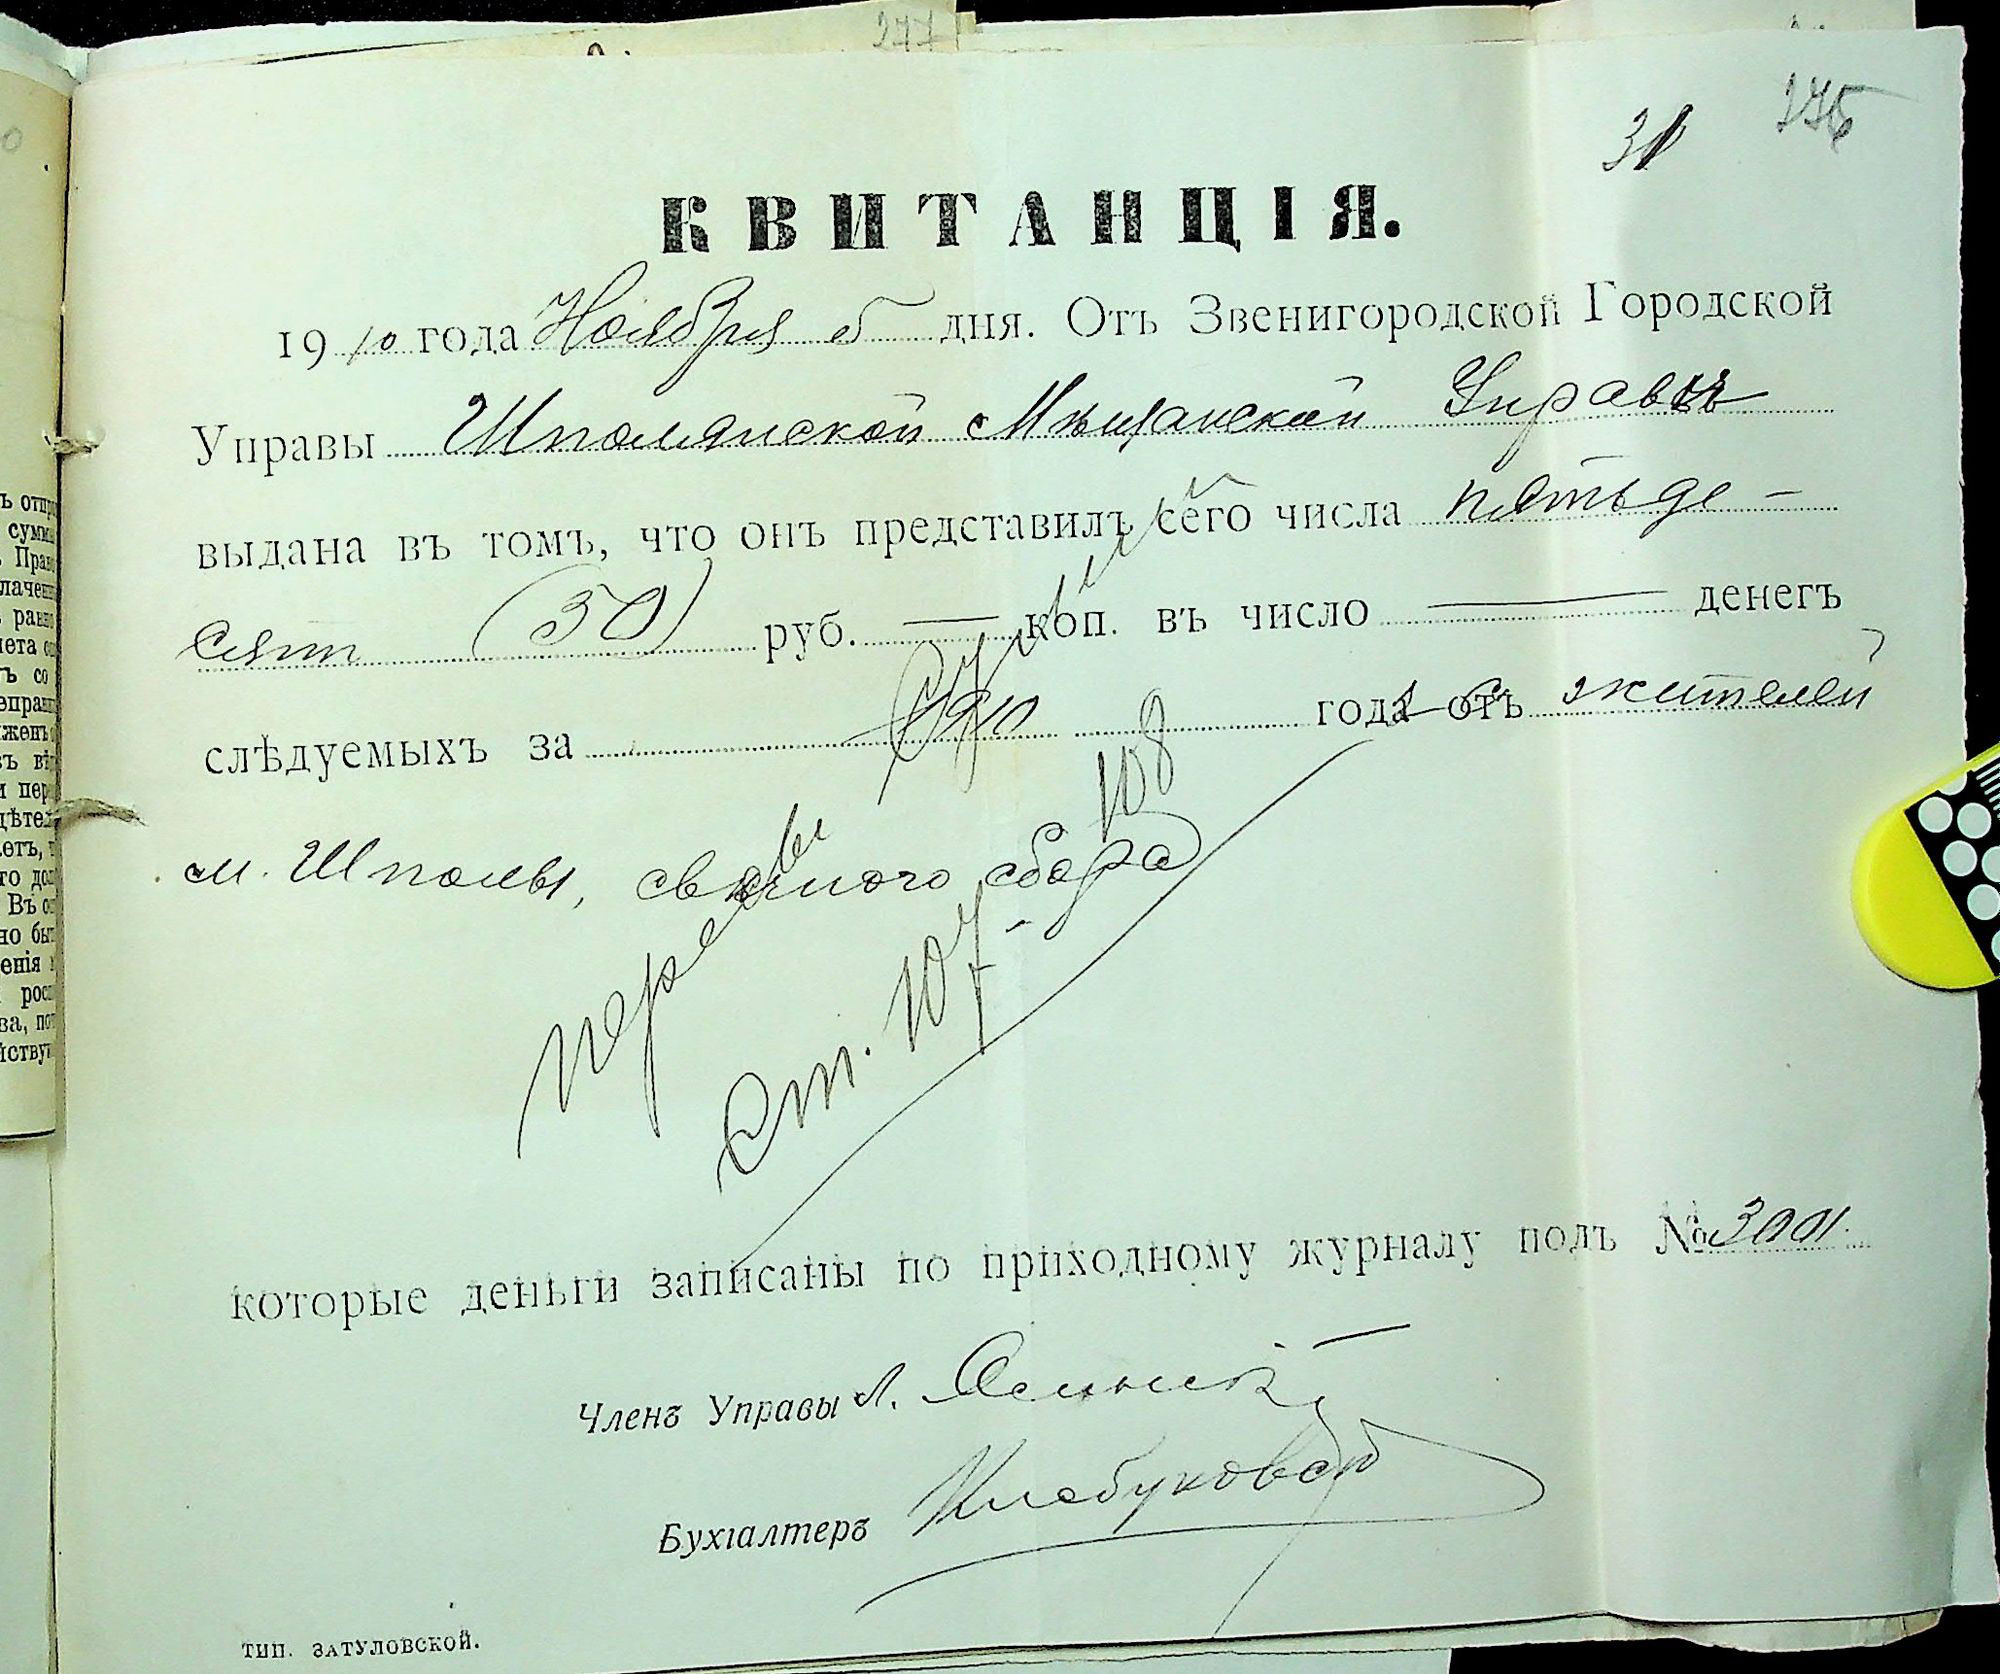 277
31 275
КВИТАНЦІЯ.
1910 года Ноября 5 дня. Отъ Звенигородской Городской
Управы Шполянской Мѣщанской Управѣ
выдана въ томъ, что онъ представилъ сего числа пятьде-
сятъ (50) руб. — коп. въ число — денегъ
слѣдуемыхъ за 1910 года съ жителей
м. Шполы, свѣчного сбора
ст. 107-108
которые деньги записаны по приходному журналу подъ № 3001.
Членъ Управы Л.
Бухгалтеръ
ТИП. ЗАТУЛОВСКОЙ.
ъ отпр
сумм
Прав
лачен
равно
ъ со
еправ
жепъ
и пер
дѣтел
то дол
но бы
енія
рос
ва, по
йству